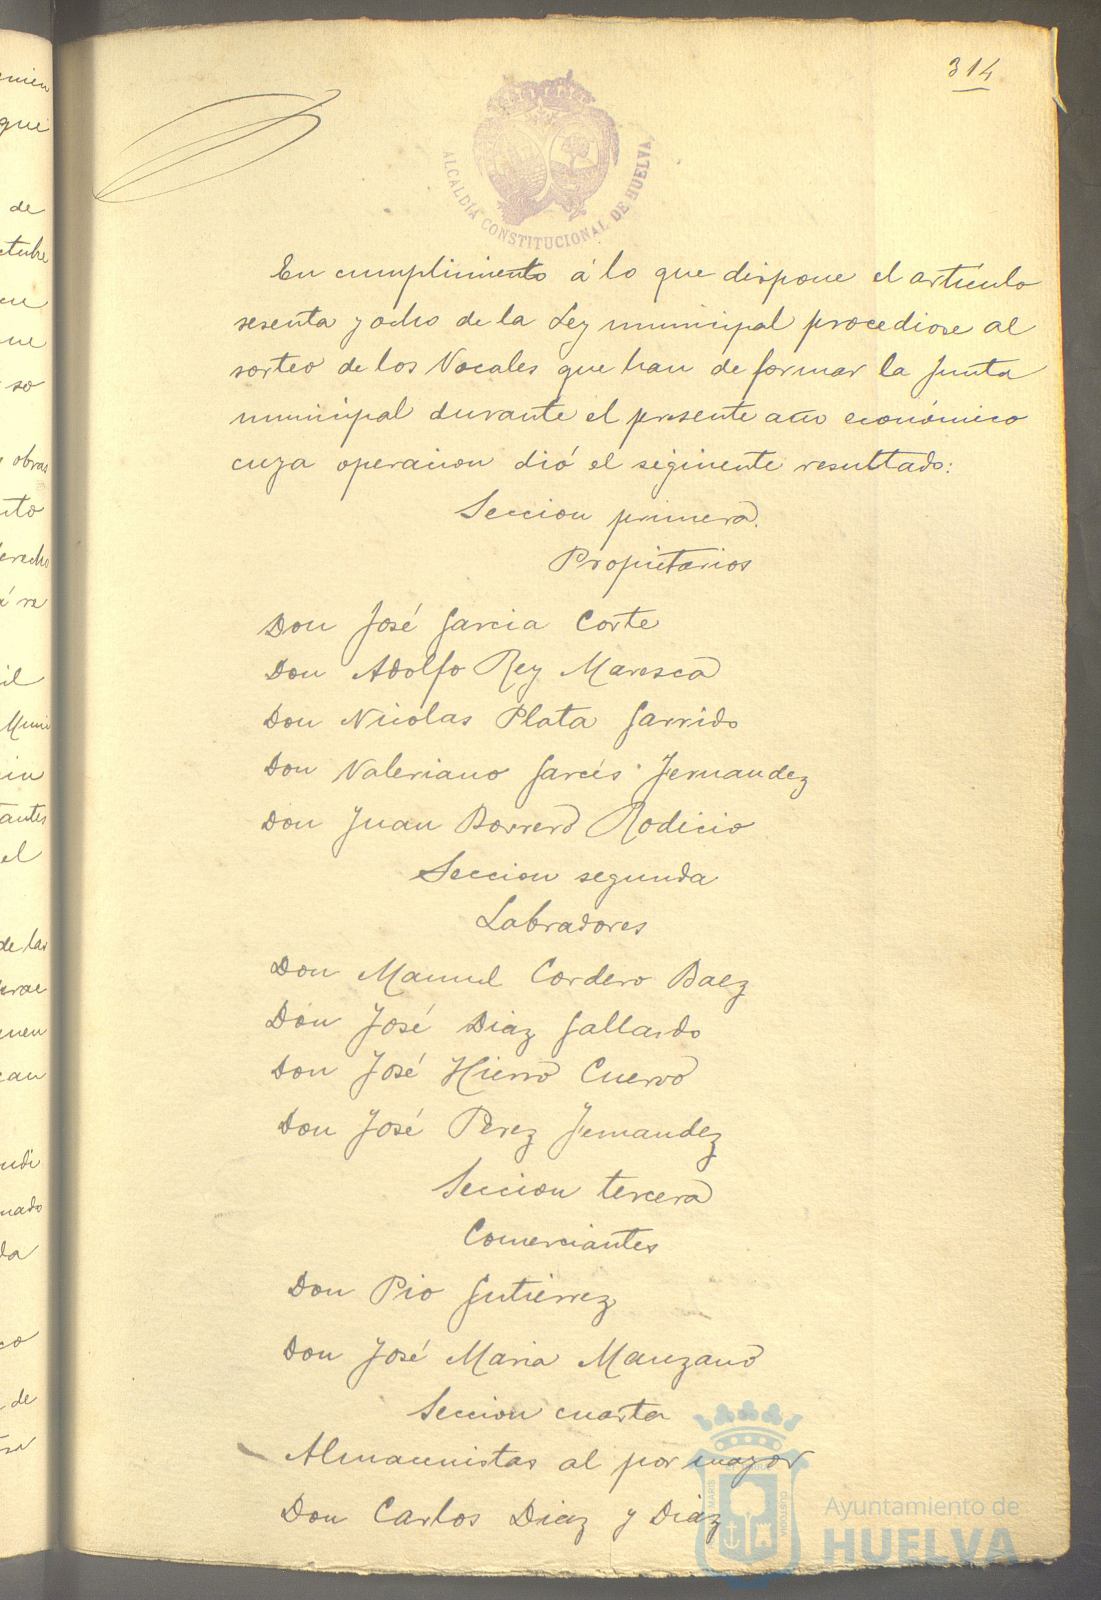 314
ALCALDÍA CONSTITUCIONAL DE HUELVA
En cumplimiento á lo que dispone el artículo
sesenta y ocho de la Ley municipal procediose al
sorteo de los Vocales que han de formar la Junta
municipal durante el presente año económico
cuya operacion dió el siguiente resultado:
Seccion primera.
Propietarios
Don José Garcia Corte
Don Adolfo Rey Maresca
Don Nicolas Plata Garrido
Don Valeriano Garcés Fernandez
Don Juan Borrero Rodicio
Seccion segunda
Labradores
Don Manuel Cordero Baez
Don José Diaz Gallardo
Don José Hierro Cuervo
Don José Perez Fernandez
Seccion tercera
Comerciantes
Don Pio Gutierrez
Don José Maria Manzano
Seccion cuarta
Almacenistas al por mayor
Don Carlos Diaz y Diaz
Ayuntamiento de
HUELVA
que
de
obras
derecho
el
de las
de